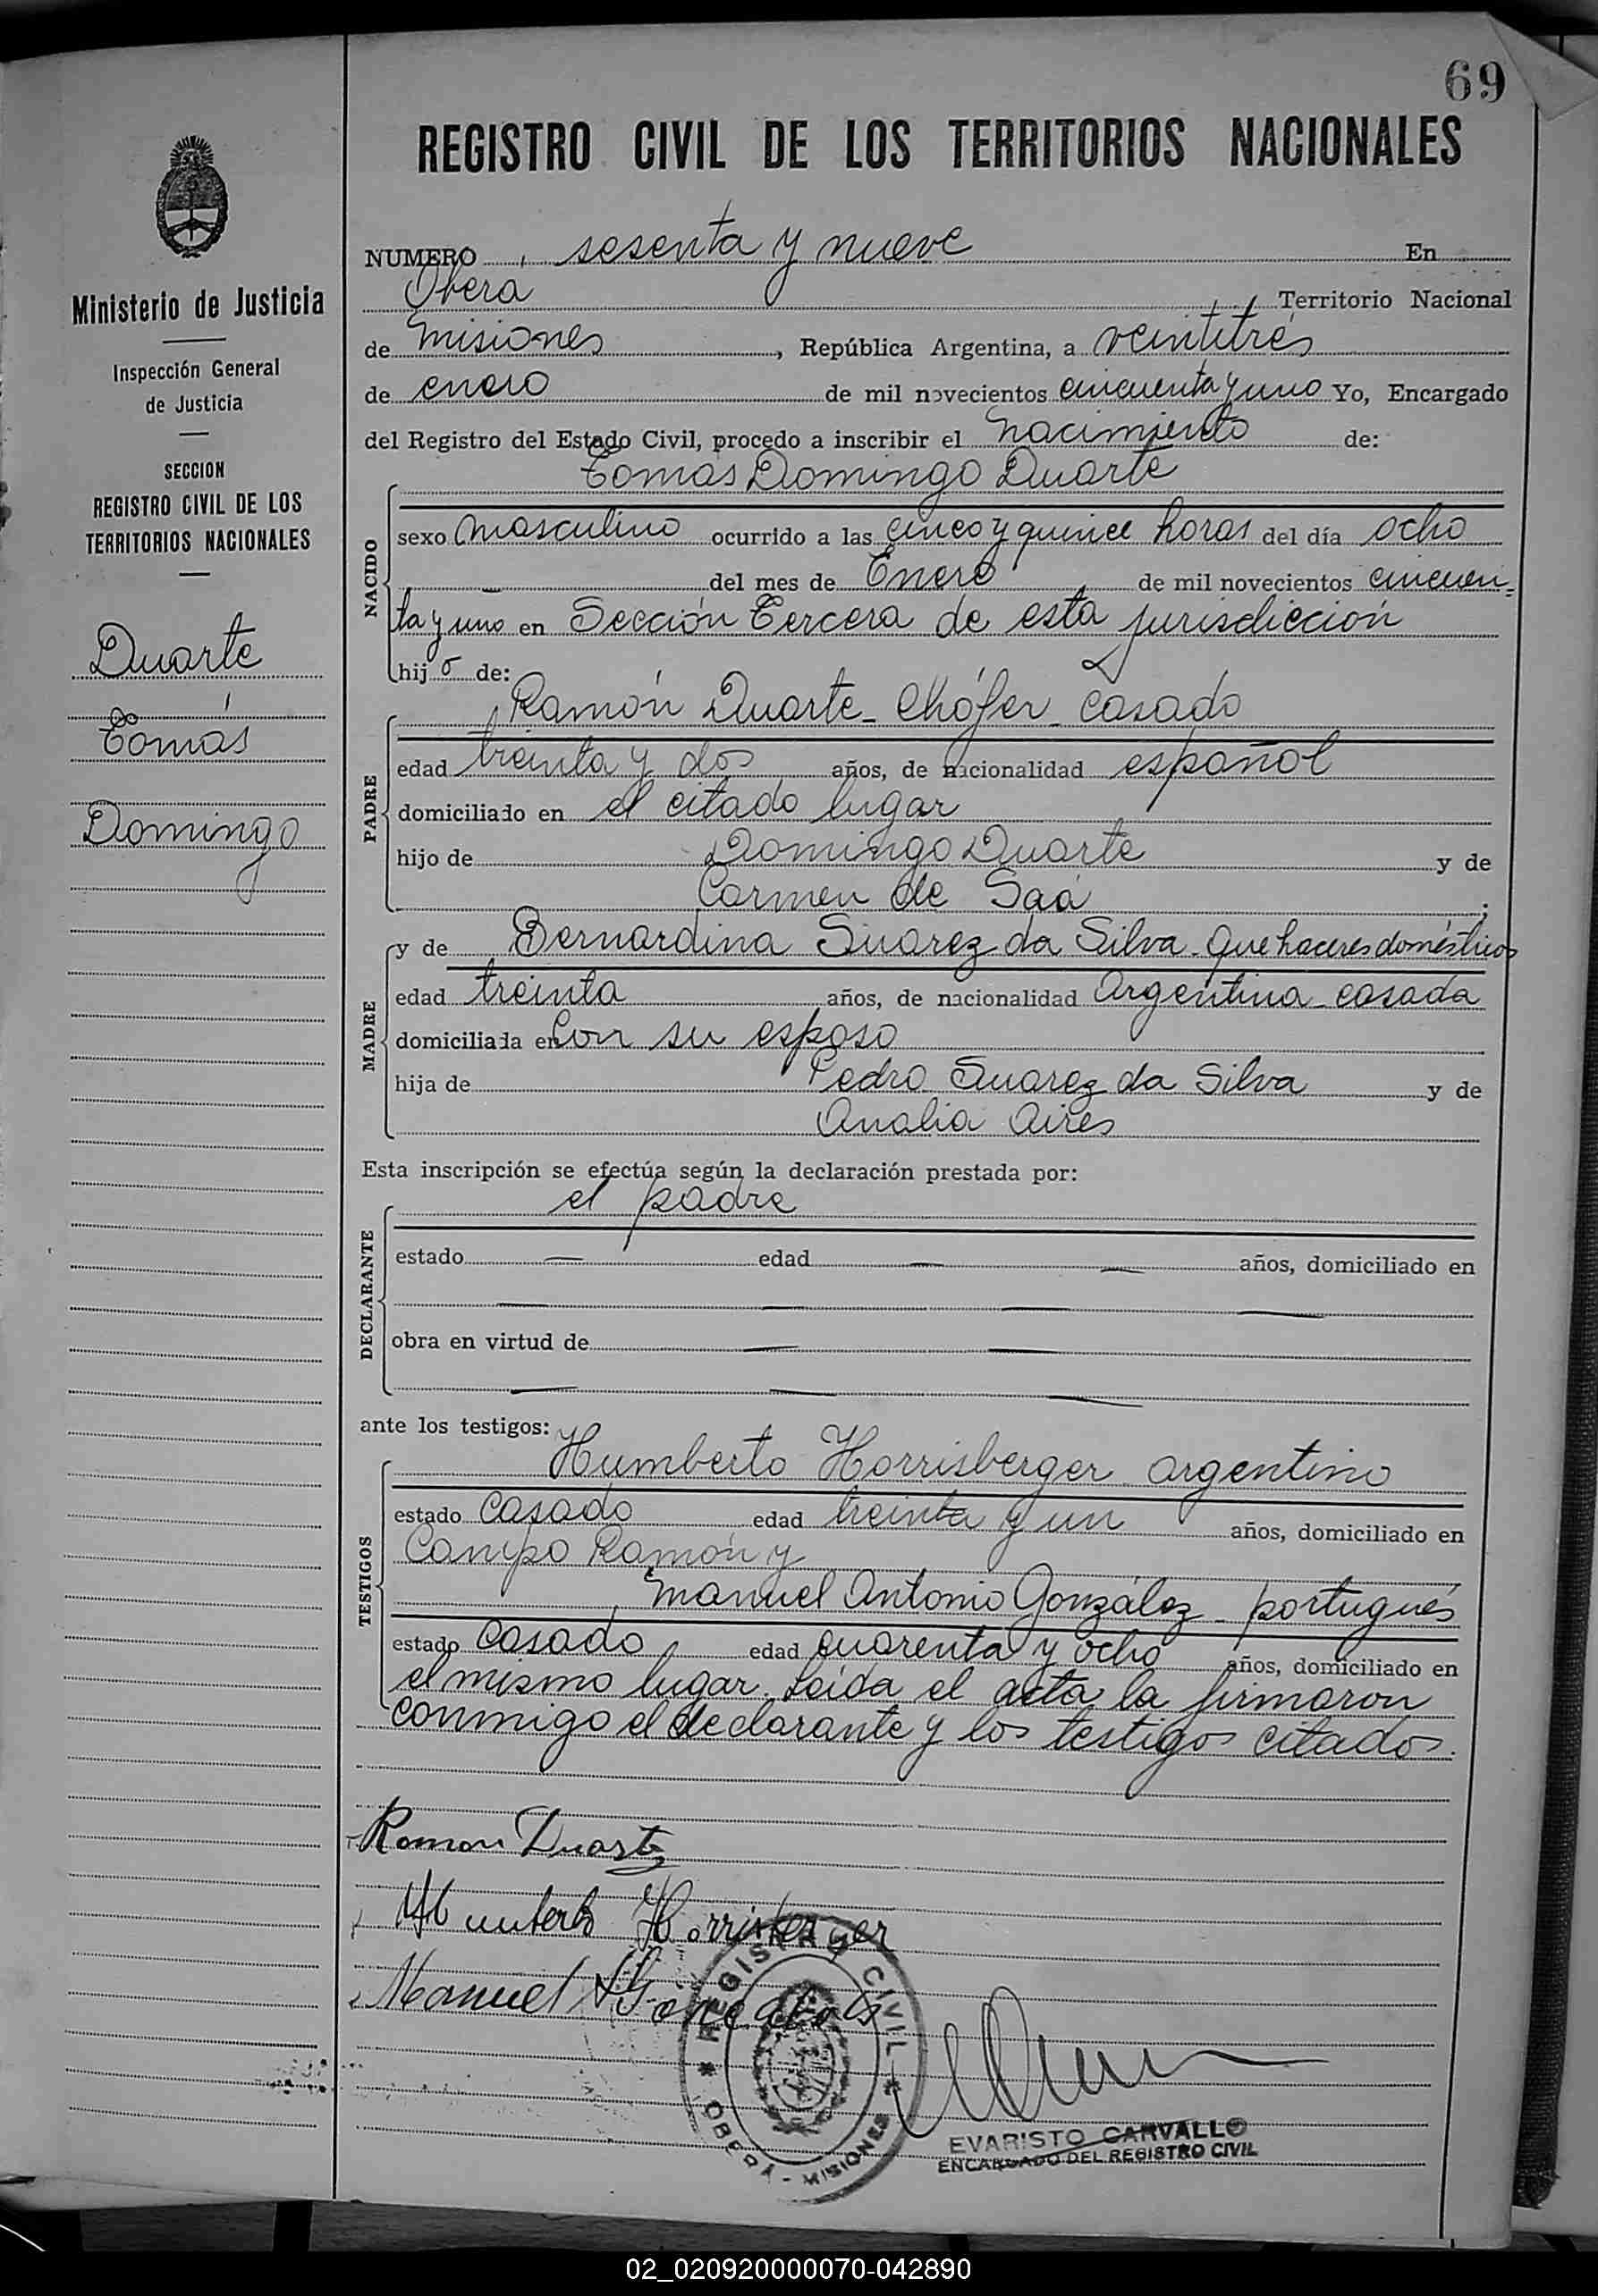 69
REGISTRO CIVIL DE LOS TERRITORIOS NACIONALES
Ministerio de Justicia
Inspección General
de Justicia
SECCION
REGISTRO CIVIL DE LOS
TERRITORIOS NACIONALES
Duarte
Tomás
Domingo
NUMERO sesenta y nueve En
Oberá Territorio Nacional
de Misiones, República Argentina, a veintitrés
de enero de mil novecientos cincuenta y uno Yo, Encargado
del Registro del Estado Civil, procedo a inscribir el nacimiento de:
NACIDO
Tomás Domingo Duarte
sexo masculino ocurrido a las cinco y quince horas del día ocho
del mes de Enero de mil novecientos cincuen
ta y uno en Sección Tercera de esta jurisdicción
hijo de:
PADRE
Ramón Duarte - Chófer - casado
edad treinta y dos años, de nacionalidad español
domiciliado en el citado lugar
hijo de Domingo Duarte y de
Carmen de Saá;
MADRE
y de Bernardina Suarez da Silva - Quehaceres domésticos
edad treinta años, de nacionalidad Argentina - casada
domiciliada en Con su esposo
hija de Pedro Suarez da Silva y de
Analia Aires
Esta inscripción se efectúa según la declaración prestada por:
DECLARANTE
el padre
estado — edad — — años, domiciliado en
— — — —
obra en virtud de — —
— — —
ante los testigos:
TESTIGOS
Humberto Horrisberger argentino
estado casado edad treinta y un años, domiciliado en
Campo Ramón y
Manuel Antonio González - portugués
estado casado edad cuarenta y ocho años, domiciliado en
el mismo lugar. Leída el acta la firmaron
conmigo el declarante y los testigos citados.
Ramon Duarte
Humberto Horrisberger
Manuel
REGISTRO CIVIL
OBERÁ - MISIONES
EVARISTO CARVALLO
ENCARGADO DEL REGISTRO CIVIL
02_020920000070-042890